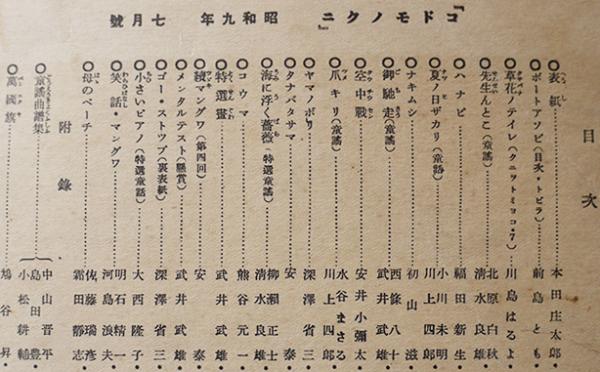 『コドモノクニ』 昭和九年 七月號
目次
○表紙……本田庄太郎
○ボートアソビ(目次・トビラ)……前島とも
○草花ノテイレ(クニツトミヨコ・7)……川島はるよ
○先生んとこ(童謠)……北原白秋
清水良雄
○ハナビ……福田新生
○夏ノ日ザカリ(童話)……小川未明
川上四郎
○ナキムシ……初山滋
○御馳走(童謠)……西條八十
武井武雄
○空中戰……安井小彌太
○爪キリ(童謠)……水谷まさる
川上四郎
○ヤマノボリ……深澤省三
○タナバタサマ……安泰
○海に浮く薔薇(特選童謠)……柳瀬正士
清水良雄
○コウマ……熊谷元一
○特選畫……武井武雄
○續マングワ(第四回)……安泰
○メンタルテスト(懸賞)……武井武雄
○ゴー・ストップ(裏表紙)……深澤省三
○小さいピアノ(特選童話)……大西隆子
○笑話・マングワ……明石精一
河島浪夫
○母のページ……佐藤瑞彦
霜田靜志
附錄
○童謠曲譜集……中山晋平
島田豊
小松耕輔
○萬國旗……鳩谷昇